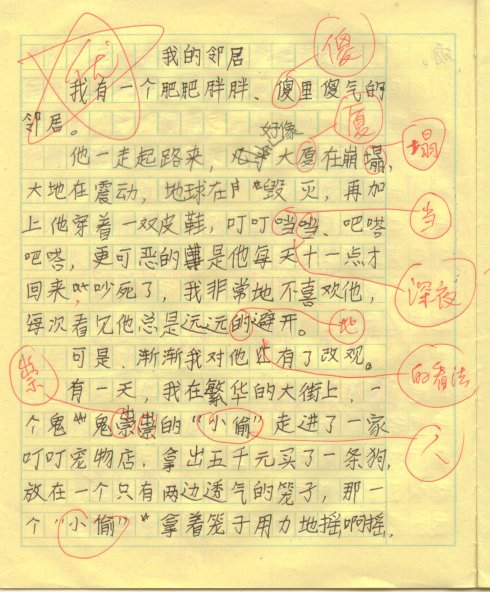 我的邻居
优
傻
我有一个肥肥胖胖、傻里傻气的
邻居。
厦
好像
他一走起路来，大厦在崩塌，
塌
大地在震动，地球在毁灭，再加
上他穿着一双皮鞋，叮叮当当、吧嗒
当
吧嗒，更可恶的是他每天十一点才
深夜
回来，吵死了，我非常地不喜欢他，
每次看见他总是远远的避开。
地
可是，渐渐我对他有了改观。
的看法
崇
有一天，我在繁华的大街上，一
个鬼鬼崇崇的“小偷”走进了一家
人
叮叮宠物店，拿出五千元买了一条狗，
放在一个只有两边透气的笼子，那一
个“小偷”拿着笼子用力地摇啊摇，